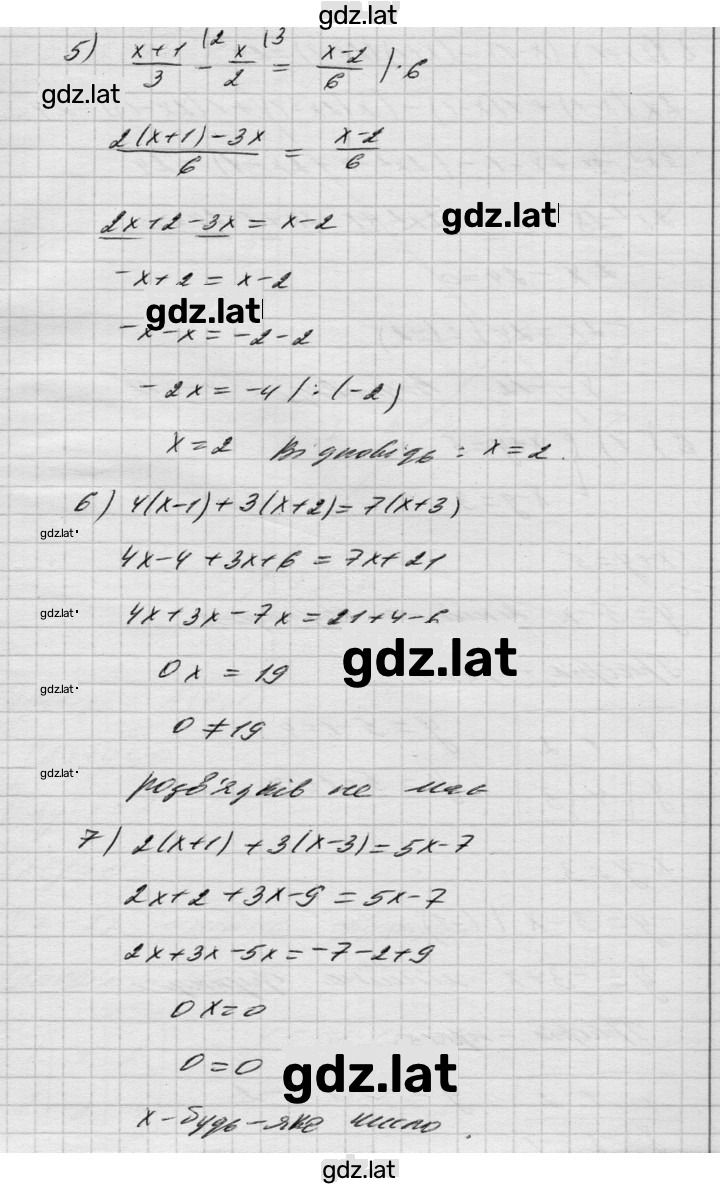 gdz.lat
5) (x+1)/3 |2 - x/2 |3 = (x-2)/6 |·6
gdz.lat
(2(x+1)-3x)/6 = (x-2)/6
2x+2-3x = x-2
gdz.lat
-x+2 = x-2
gdz.lat
-x-x = -2-2
-2x = -4 /:(-2)
x=2 Відповідь: x=2.
6) 4(x-1)+3(x+2)=7(x+3)
gdz.lat
4x-4+3x+6 = 7x+21
gdz.lat
4x+3x-7x=21+4-6
gdz.lat
0x = 19
gdz.lat
0≠19
gdz.lat
розв'язків не має
7) 2(x+1)+3(x-3)=5x-7
2x+2+3x-9=5x-7
2x+3x-5x=-7-2+9
0x=0
0=0
gdz.lat
x-будь-яке число.
gdz.lat